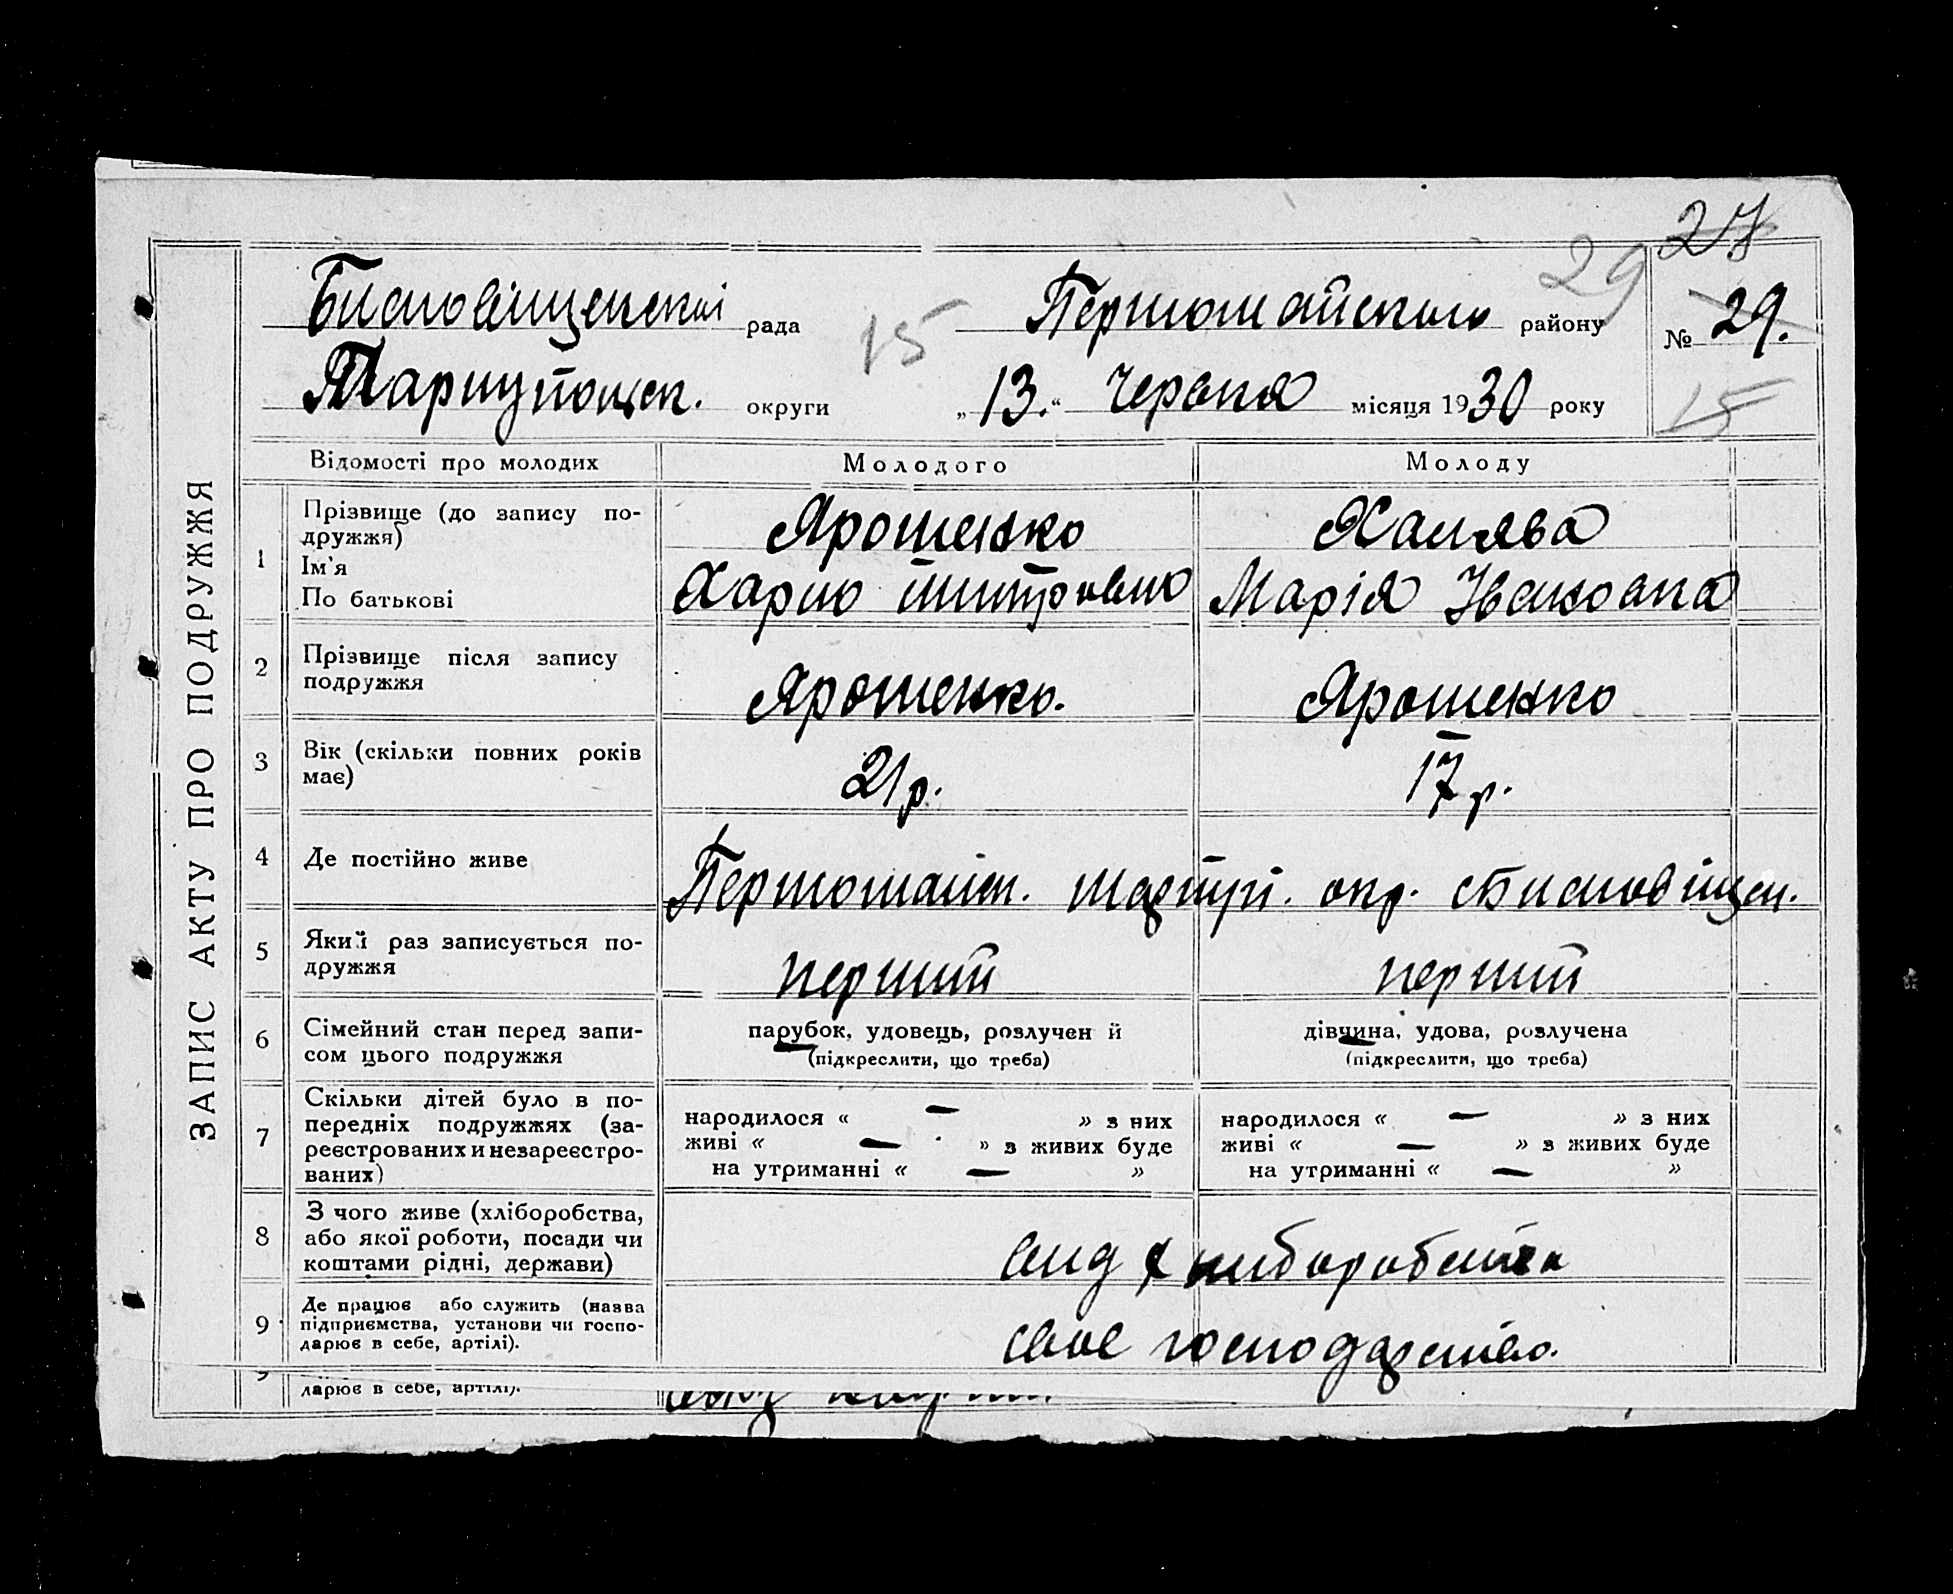 27
29
Благовіщенської рада
15
Першомайського району
№ 29.
Маріупольськ. округи
„ 13. “ червня місяця 1930 року
15
ЗАПИС АКТУ ПРО ПОДРУЖЖЯ
Відомості про молодих
Молодого
Молоду
1
Прізвище (до запису по-
дружжя)
Ім'я
По батькові
Ярошенко
Марія Іванівна
2
Прізвище після запису
подружжя
Ярошенко.
Ярошенко
3
Вік (скільки повних років
має)
21 р.
17 р.
4
Де постійно живе
5
Який раз записується по-
дружжя
перший
перший
6
Сімейний стан перед запи-
сом цього подружжя
парубок, удовець, розлучен й
(підкреслити, що треба)
дівчина, удова, розлучена
(підкреслити, що треба)
7
Скільки дітей було в по-
передніх подружжях (за-
реєстрованих и незареєстро-
ваних)
народилося « — » з них
живі « — » з живих буде
на утриманні « — »
народилося « — » з них
живі « — » з живих буде
на утриманні « — »
8
З чого живе (хліборобства,
або якої роботи, посади чи
коштами рідні, держави)
від хліборобства
9
Де працює або служить (назва
підприємства, установи чи госпо-
дарює в себе, артілі).
своє господарство.
9
дарює в себе, артілі).